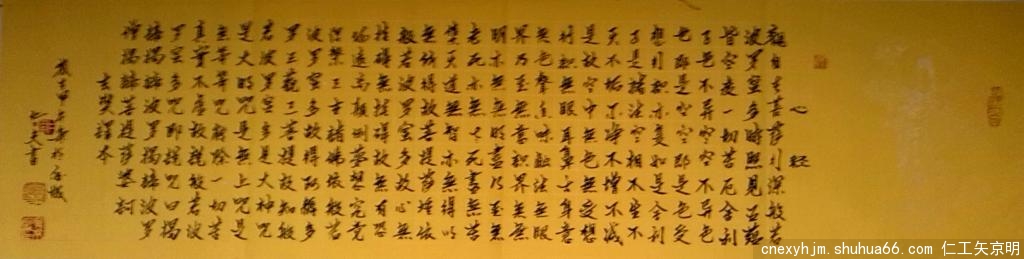 心 经
觀自在菩薩行深般若
波罗蜜多時照見五蘊
皆空度一切苦厄舍利
子色不异空空不异色
色即是空空即是色受
想行识亦复如是舍利
子是諸法空相不生不
灭不垢不净不增不减
是故空中無色無受想
行识無眼耳鼻舌身意
無色聲香味触法無眼
界乃至無意识界無無
明亦無無明盡乃至無
老死亦無老死盡無苦
集灭道無智亦無得以
無所得故菩提萨埵依
般若波罗蜜多故心無
挂碍無挂碍故無有恐
怖遠離颠倒梦想究竟
涅槃三世諸佛依般若
波罗蜜多故得阿耨多
罗三藐三菩提故知般
若波罗蜜多是大神咒
是大明咒是無上咒是
無等等咒能除一切苦
真實不虚故説般若波
罗蜜多咒即説咒曰揭
諦揭諦波罗揭諦波罗
僧揭諦菩提萨婆訶
玄奘譯本
cnexyhjm.shuhua66.com 仁工矢京明